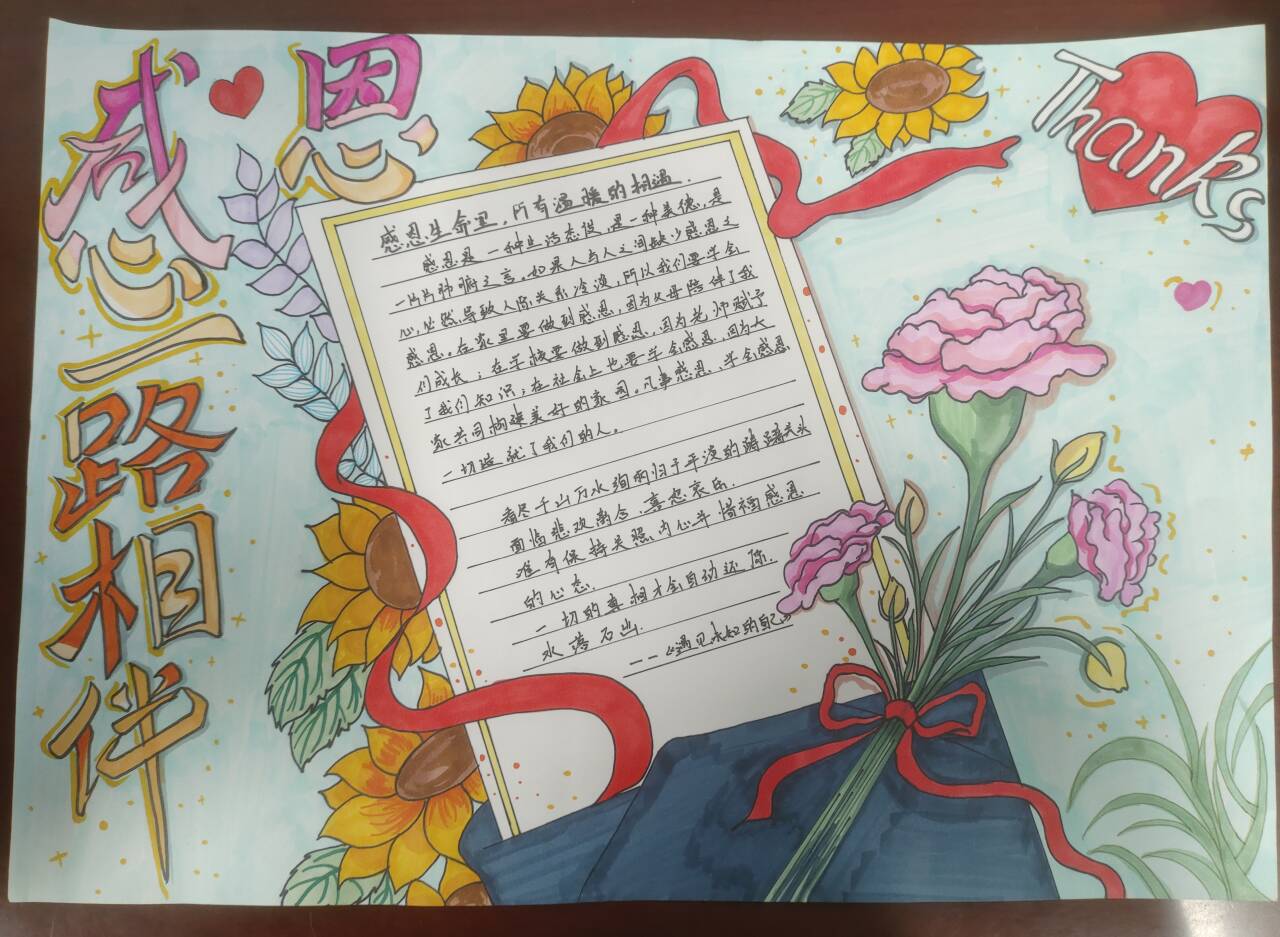 感恩
感恩一路相伴
Thanks
感恩生命里,所有温暖的相遇.
感恩是一种生活态度,是一种美德,是
一片片肺腑之言。如果人与人之间缺少感恩之
心,必然导致人际关系冷淡,所以我们要学会
感恩。在家里要做到感恩,因为父母陪伴了我
们成长;在学校要做到感恩,因为老师赋予
了我们知识;在社会上也要学会感恩,因为大
家共同构建美好的家园。凡事感恩、学会感恩
一切造就了我们的人。
看尽千山万水绚雨归于平淡的踌躇关头
面临悲欢离合、喜怒哀乐.
难有保持关照内心并惜福感恩
的心态.
一切的真相才会自动还原.
水落石出.
——《遇见未知的自己》